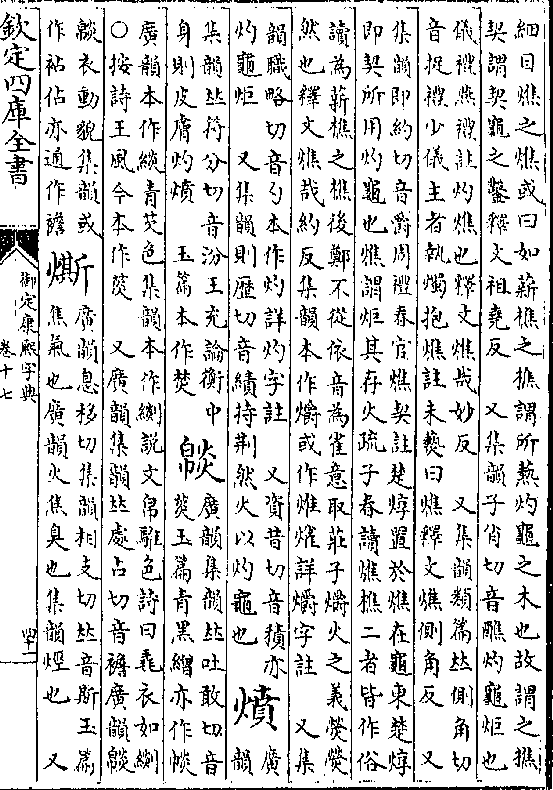 細目燋之燋或曰如薪樵之樵謂所爇灼龜之木也故謂之樵
契謂契龜之鑿釋文祖堯反　又集韻子肖切音醮灼龜炬也
儀禮燕禮註灼燋也釋文燋哉妙反　又集韻類篇𠀤側角切
音捉禮少儀主者執燭抱燋註未爇曰燋釋文燋側角反　又
集韻即約切音爵周禮春官燋契註楚焞置於燋在龜東楚焞
即契所用灼龜也燋謂炬其存火疏子春讀燋樵二者皆作俗
讀為薪樵之樵後鄭不從依音為雀意取莊子爝火之義熒熒
然也釋文燋哉約反集韻本作爝或作燋㸌詳爝字註　又集
韻職略切音勺本作灼詳灼字註　又資昔切音積亦
灼龜炬　又集韻則歴切音績持荆然火以灼龜也
燌
廣韻
集韻𠀤符分切音汾王充論衡中
身則皮膚灼燌　玉篇本作焚
廣韻集韻𠀤吐敢切音
菼玉篇青黑繒亦作㡎
廣韻本作緂青莢色集韻本作緂説文帛騅色詩曰毳衣如緂
○按詩王風今本作菼　又廣韻集韻𠀤處占切音襜廣韻
衣動貌集韻或
作袩佔亦通作襜
㯕
廣韻息移切集韻相支切𠀤音斯玉篇
焦氣也廣韻火焦臭也集韻煙也　又
欽定四庫全書
御定康熙字典
卷十七